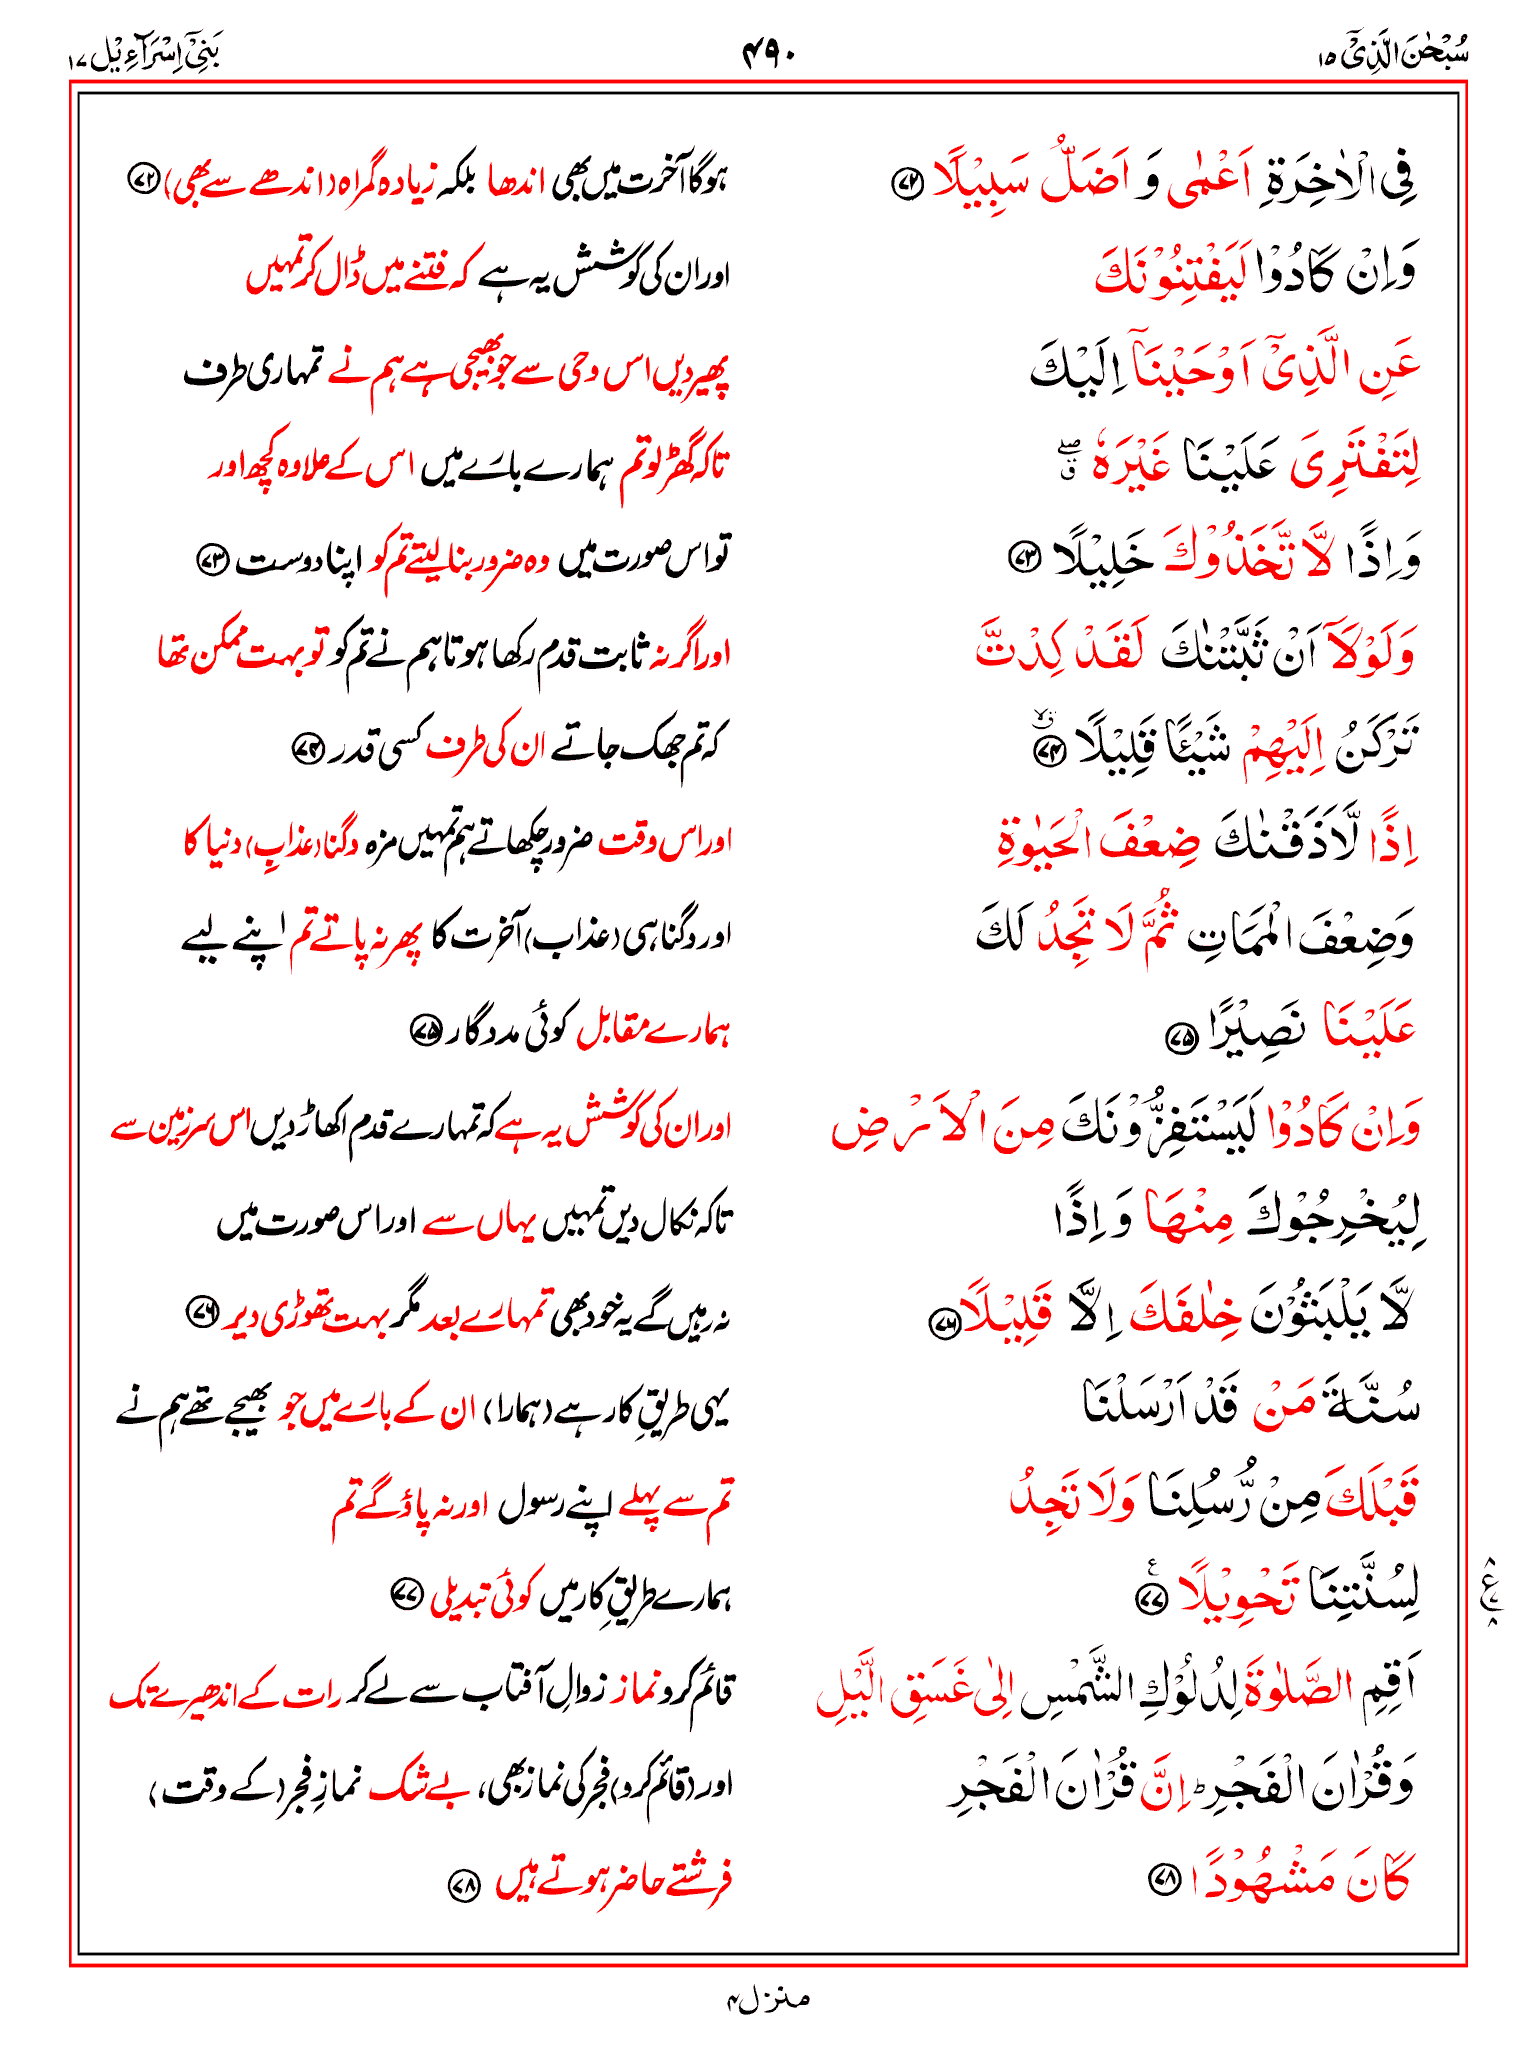 سُبْحٰنَ الَّذِیْۤ ۱۵
۴۹۰
بَنِیْۤ اِسْرَآءِیْل ۱۷
فِی الْاٰخِرَةِ اَعْمٰی وَ اَضَلُّ سَبِیْلًا ﴿۷۲﴾ ہوگا آخرت میں بھی اندھا بلکہ زیادہ گمراہ (اندھے سے بھی) ﴿۷۲﴾
وَاِنْ كَادُوْا لَیَفْتِنُوْنَكَ اور ان کی کوشش یہ ہے کہ فتنے میں ڈال کر تمہیں
عَنِ الَّذِیْۤ اَوْحَیْنَاۤ اِلَیْكَ پھیر دیں اس وحی سے جو بھیجی ہے ہم نے تمہاری طرف
لِتَفْتَرِیَ عَلَیْنَا غَیْرَهٗ ۖق تاکہ گھڑ لو تم ہمارے بارے میں اس کے علاوہ کچھ اور
وَاِذًا لَّاتَّخَذُوْكَ خَلِیْلًا ﴿۷۳﴾ تو اس صورت میں وہ ضرور بنا لیتے تم کو اپنا دوست ﴿۷۳﴾
وَلَوْلَاۤ اَنْ ثَبَّتْنٰكَ لَقَدْ كِدْتَّ اور اگر نہ ثابت قدم رکھا ہوتا ہم نے تم کو تو بہت ممکن تھا
تَرْكَنُ اِلَیْهِمْ شَیْـًٔا قَلِیْلًا ﴿۷۴﴾ۙق کہ تم جھک جاتے ان کی طرف کسی قدر ﴿۷۴﴾
اِذًا لَّاَذَقْنٰكَ ضِعْفَ الْحَیٰوةِ اور اس وقت ضرور چکھاتے ہم تمہیں مزہ دگنا (عذابِ) دنیا کا
وَضِعْفَ الْمَمَاتِ ثُمَّ لَا تَجِدُ لَكَ اور دگنا ہی (عذاب) آخرت کا پھر نہ پاتے تم اپنے لیے
عَلَیْنَا نَصِیْرًا ﴿۷۵﴾ ہمارے مقابل کوئی مددگار ﴿۷۵﴾
وَاِنْ كَادُوْا لَیَسْتَفِزُّوْنَكَ مِنَ الْاَرْضِ اور ان کی کوشش یہ ہے کہ تمہارے قدم اکھاڑ دیں اس سرزمین سے
لِیُخْرِجُوْكَ مِنْهَا وَاِذًا تاکہ نکال دیں تمہیں یہاں سے اور اس صورت میں
لَّا یَلْبَثُوْنَ خِلٰفَكَ اِلَّا قَلِیْلًا ﴿۷۶﴾ نہ رہیں گے یہ خود بھی تمہارے بعد مگر بہت تھوڑی دیر ﴿۷۶﴾
سُنَّةَ مَنْ قَدْ اَرْسَلْنَا یہی طریقِ کار ہے (ہمارا) ان کے بارے میں جو بھیجے تھے ہم نے
قَبْلَكَ مِنْ رُّسُلِنَا وَلَا تَجِدُ تم سے پہلے اپنے رسول اور نہ پاؤ گے تم
لِسُنَّتِنَا تَحْوِیْلًا ﴿۷۷﴾ ع ہمارے طریقِ کار میں کوئی تبدیلی ﴿۷۷﴾
۸ ع ۷ ۸
اَقِمِ الصَّلٰوةَ لِدُلُوْكِ الشَّمْسِ اِلٰی غَسَقِ الَّیْلِ قائم کرو نماز زوالِ آفتاب سے لے کر رات کے اندھیرے تک
وَقُرْاٰنَ الْفَجْرِ ؕ اِنَّ قُرْاٰنَ الْفَجْرِ اور (قائم کرو) فجر کی نماز بھی، بے شک نمازِ فجر (کے وقت)
كَانَ مَشْهُوْدًا ﴿۷۸﴾ فرشتے حاضر ہوتے ہیں ﴿۷۸﴾
منزل ۴